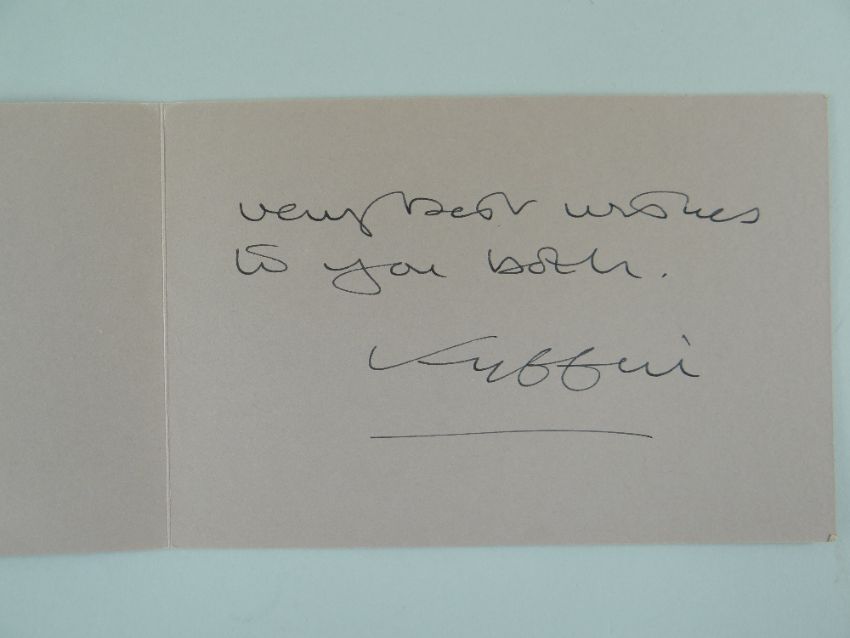 very best wishes
to you both.
Kyffin